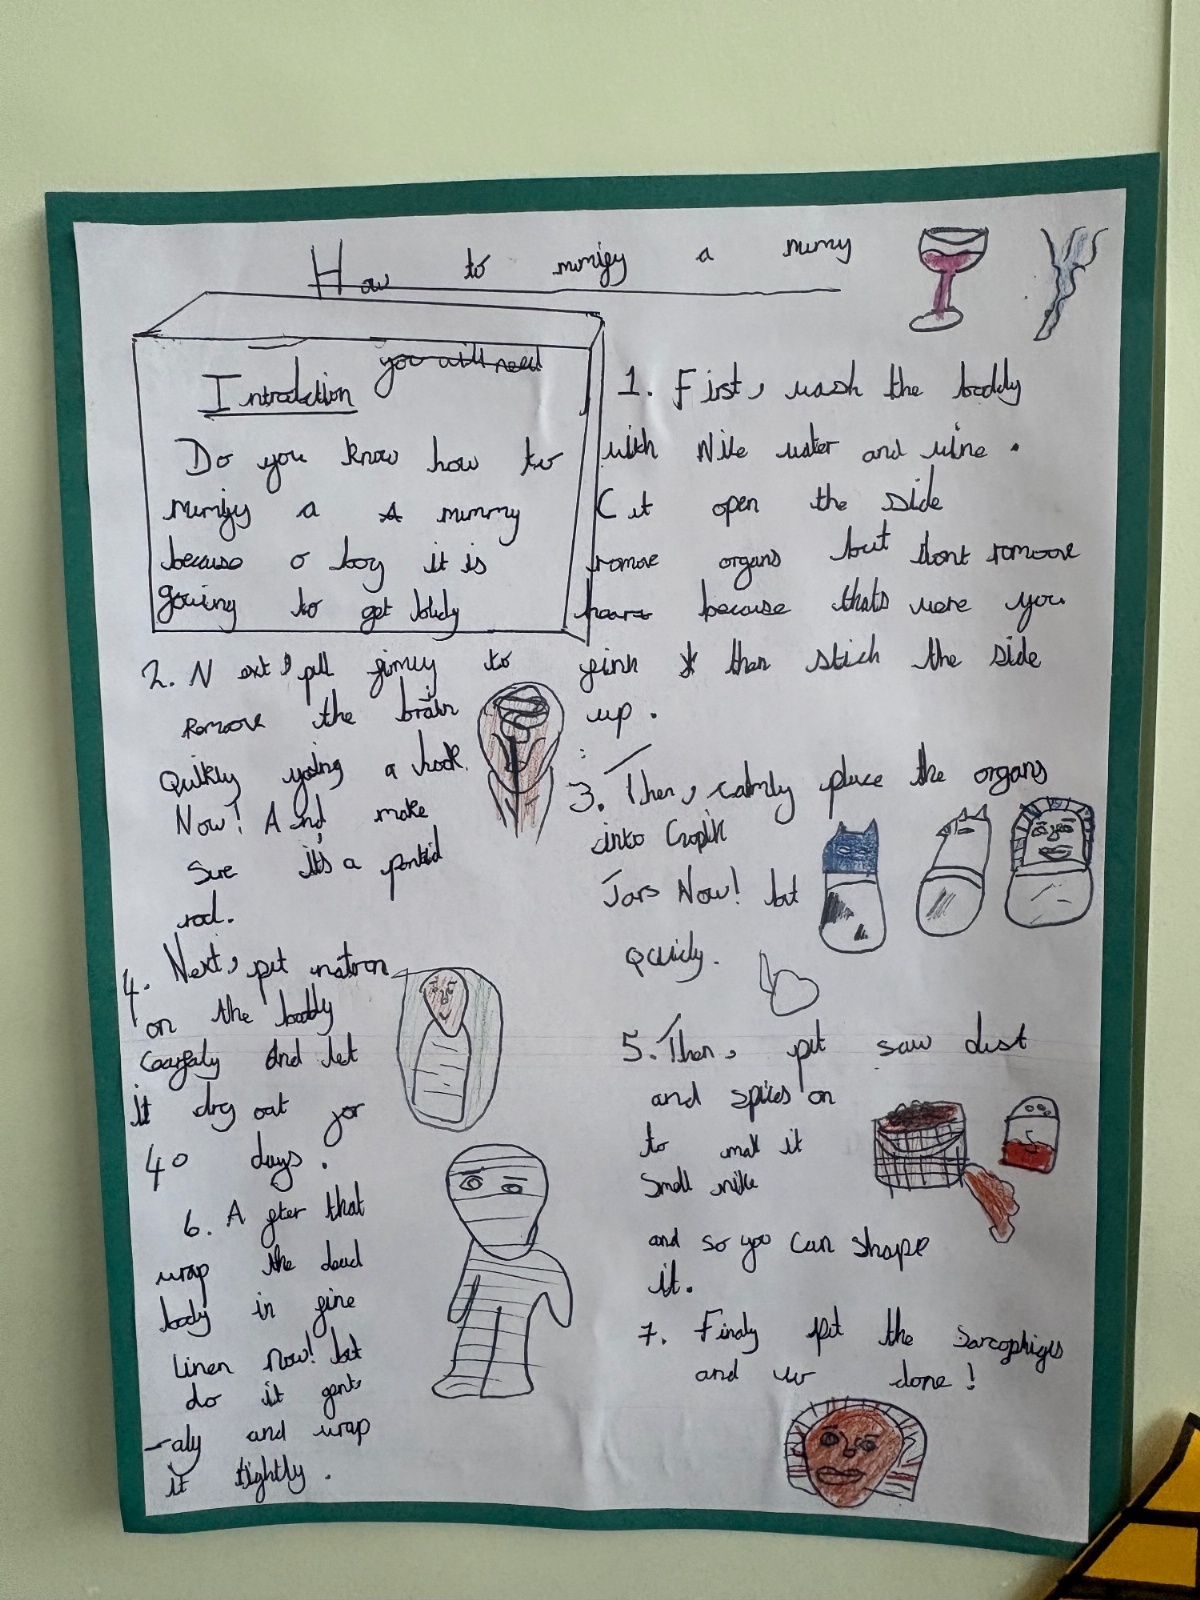 How to mimigy a mumy
you will need
Introduction
Do you know how to
mimigy a A mummy
because o boy it is
gowing to get bludy
1. First, wash the boddy
with Nile water and wine.
Cut open the side
romove organs but dont romoove
heart because thats were you
think then stich the side
up.
2. Next, pull firmly to
Remove the brain
Quikly using a hook.
Now! And make
Sure it's a pointid
rod.
3. Then, calmly place the organs
into Cnopik
Jars Now! but
Quicly.
4. Next, put natron
on the boddy
Carfaly And let
it dry out for
40 days.
5. Then, put saw dust
and spices on
to mak it
Smell nike
and so you can shape
it.
6. After that
wrap the dead
body in fine
linen Now! but
do it gent
-aly and wrap
it tightly.
7. Finaly put the Sarcophigus
and ur done!